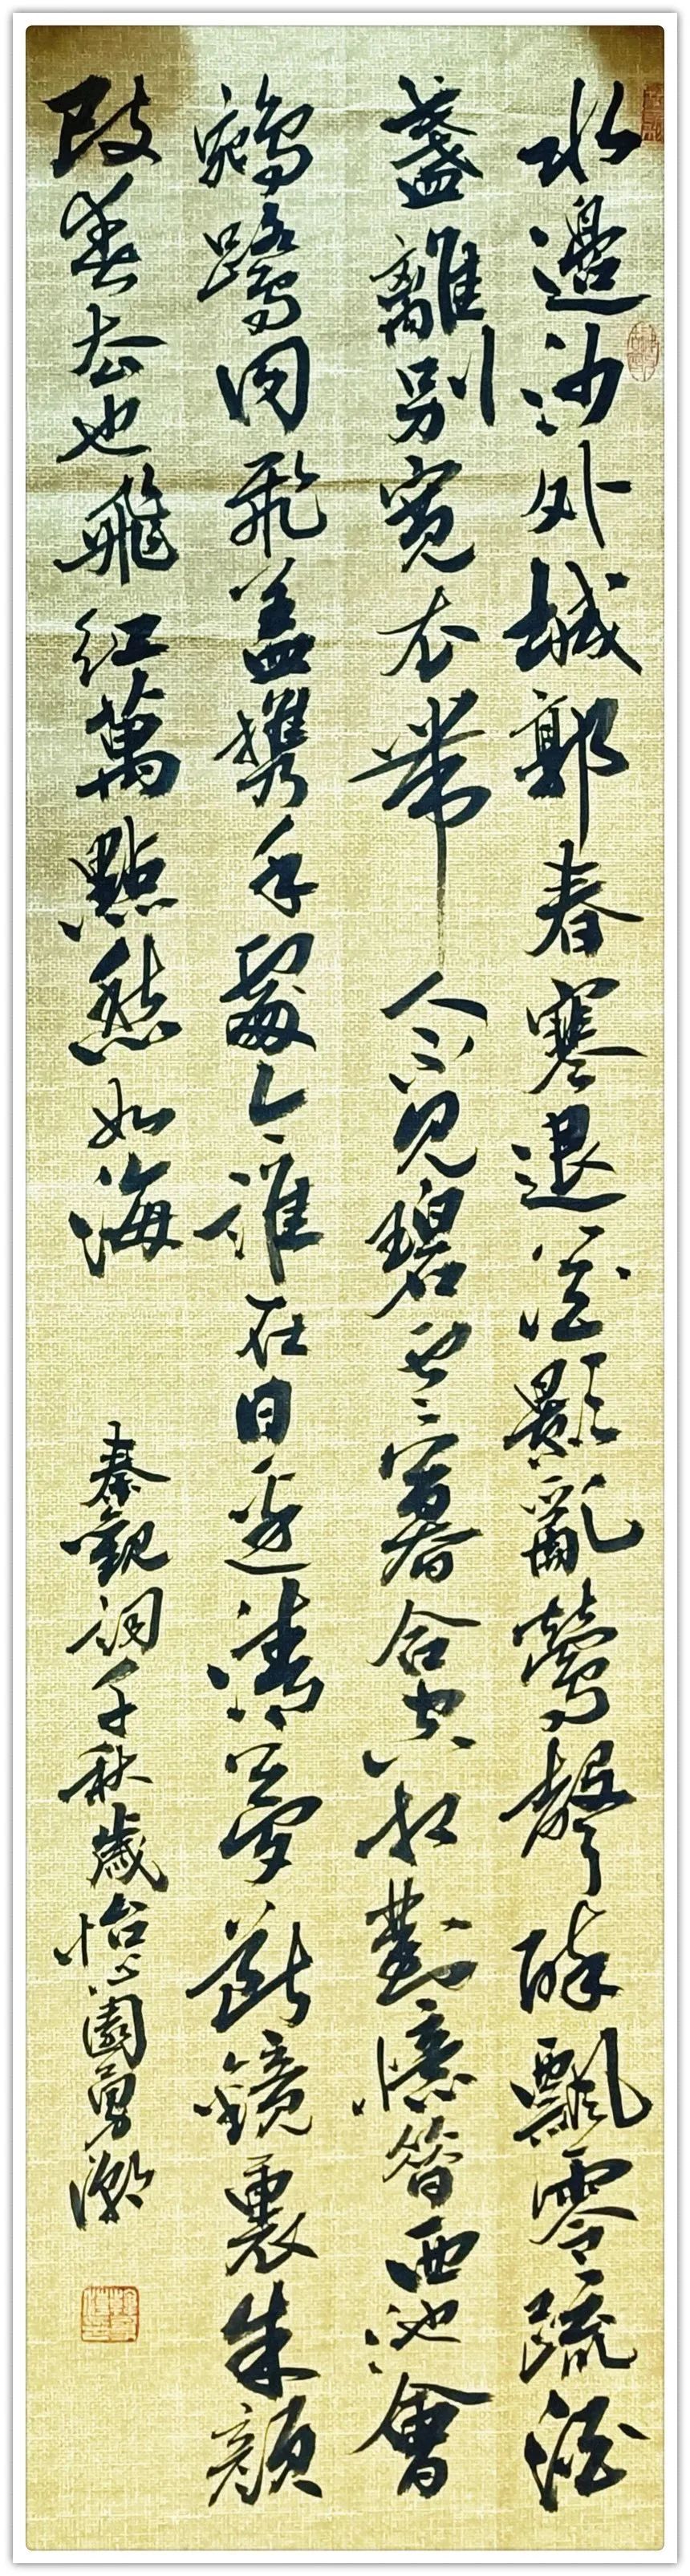 水邊沙外城郭春寒退花影亂鶯聲碎飄零疏酒
盞離別寬衣帶人不見碧雲暮合空相對憶昔西池會
鵷鷺同飛蓋携手處今誰在日邊清夢斷鏡裏朱顏
改春去也飛紅萬點愁如海
秦觀詞千秋歲怡心園勇潮